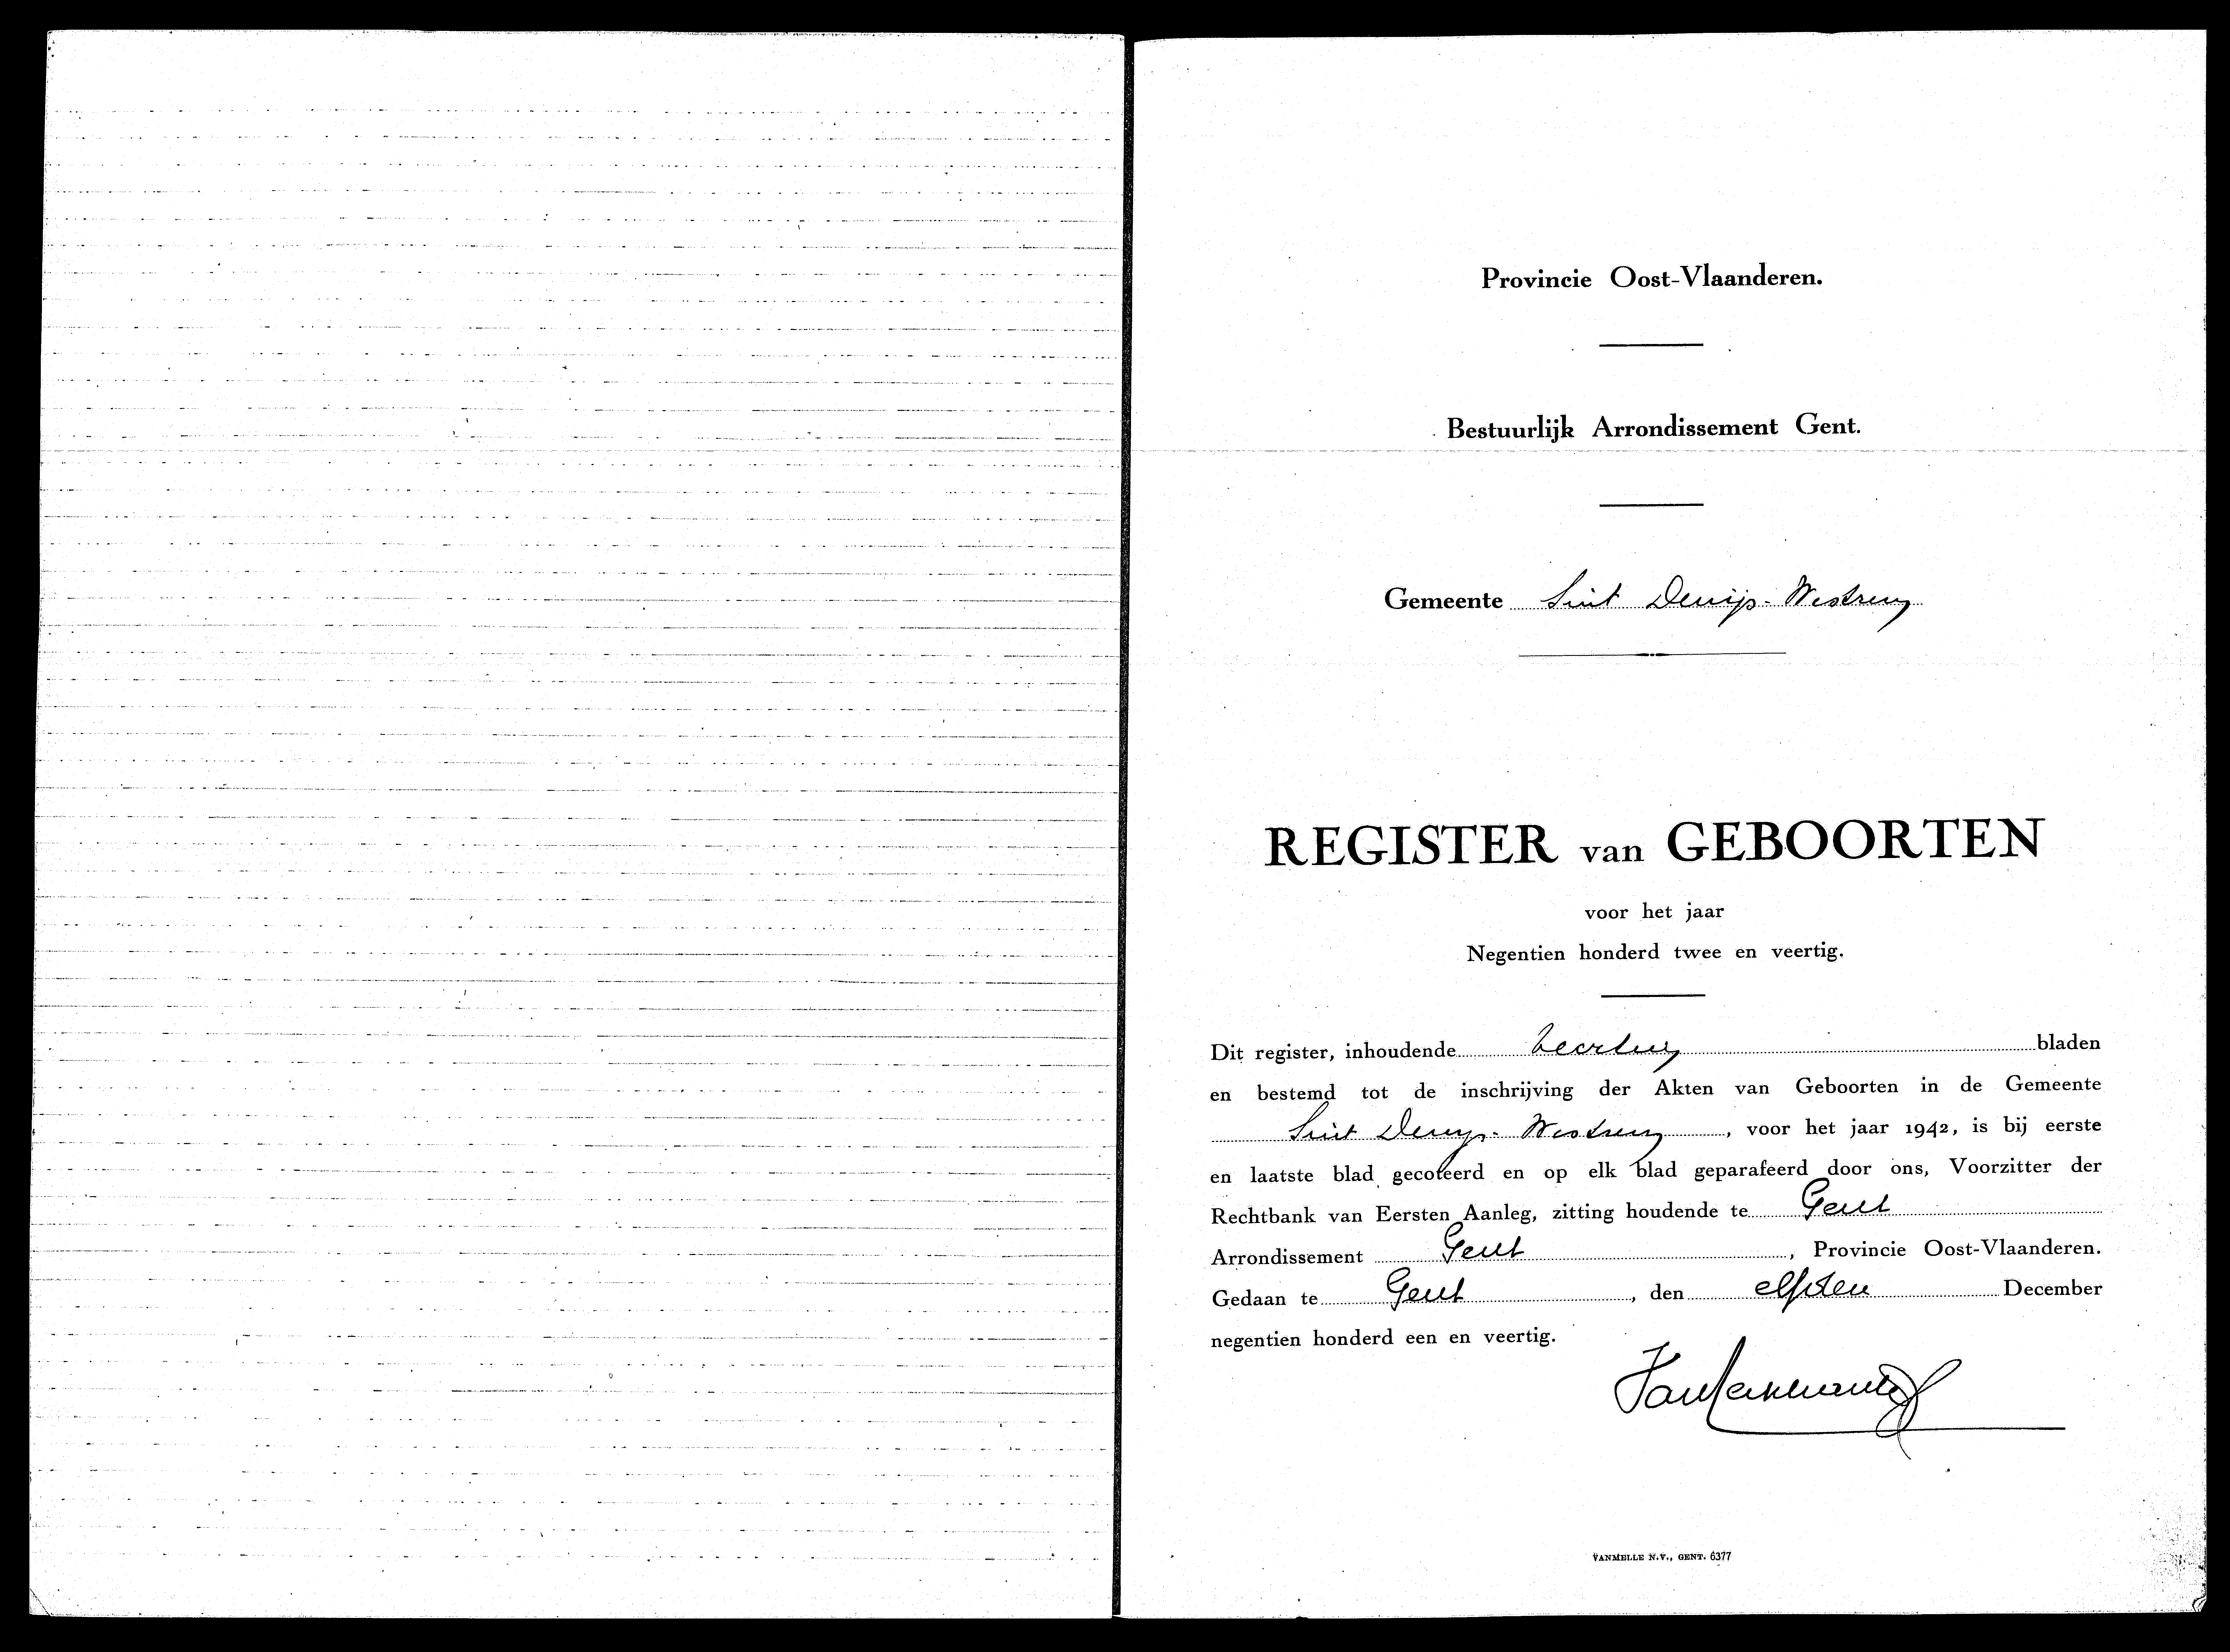 Provincie Oost-Vlaanderen.
Bestuurlijk Arrondissement Gent.
Gemeente Sint Denijs-Westrem
REGISTER van GEBOORTEN
voor het jaar
Negentien honderd twee en veertig.
Dit register, inhoudende veertig bladen
en bestemd tot de inschrijving der Akten van Geboorten in de Gemeente
Sint Denijs-Westrem, voor het jaar 1942, is bij eerste
en laatste blad gecoteerd en op elk blad geparafeerd door ons, Voorzitter der
Rechtbank van Eersten Aanleg, zitting houdende te Gent
Arrondissement Gent, Provincie Oost-Vlaanderen.
Gedaan te Gent, den elfden December
negentien honderd een en veertig.
VANMELLE N.V., GENT. 6377